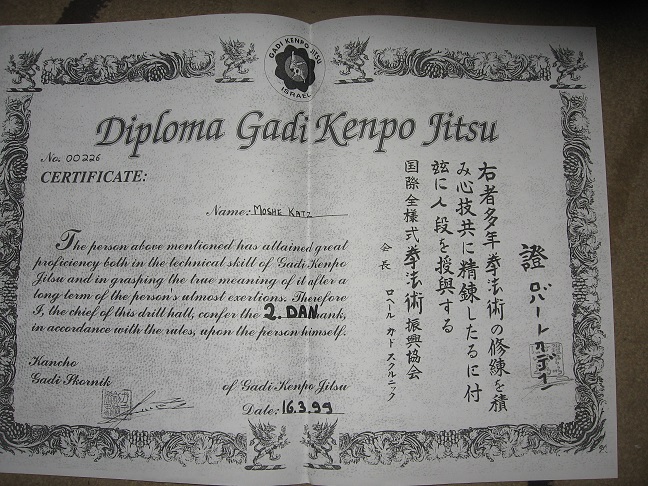 GADI KENPO JITSU
ISRAEL
Diploma Gadi Kenpo Jitsu
No. 00226
CERTIFICATE:
Name: MOSHE KATZ
The person above mentioned has attained great
proficiency both in the technical skill of Gadi Kenpo
Jitsu and in grasping the true meaning of it after a
long term of the person's utmost exertions. Therefore
I, the chief of this drill hall, confer the 2. DAN ank,
in accordance with the rules, upon the person himself.
Kancho
Gadi Skornik
of Gadi Kenpo Jitsu
Date: 16.3.99
證
右者多年拳法術の修練を積
み心技共に精錬したるに付
玆に 段を授與する
国際全様式拳法術振興協会
会長